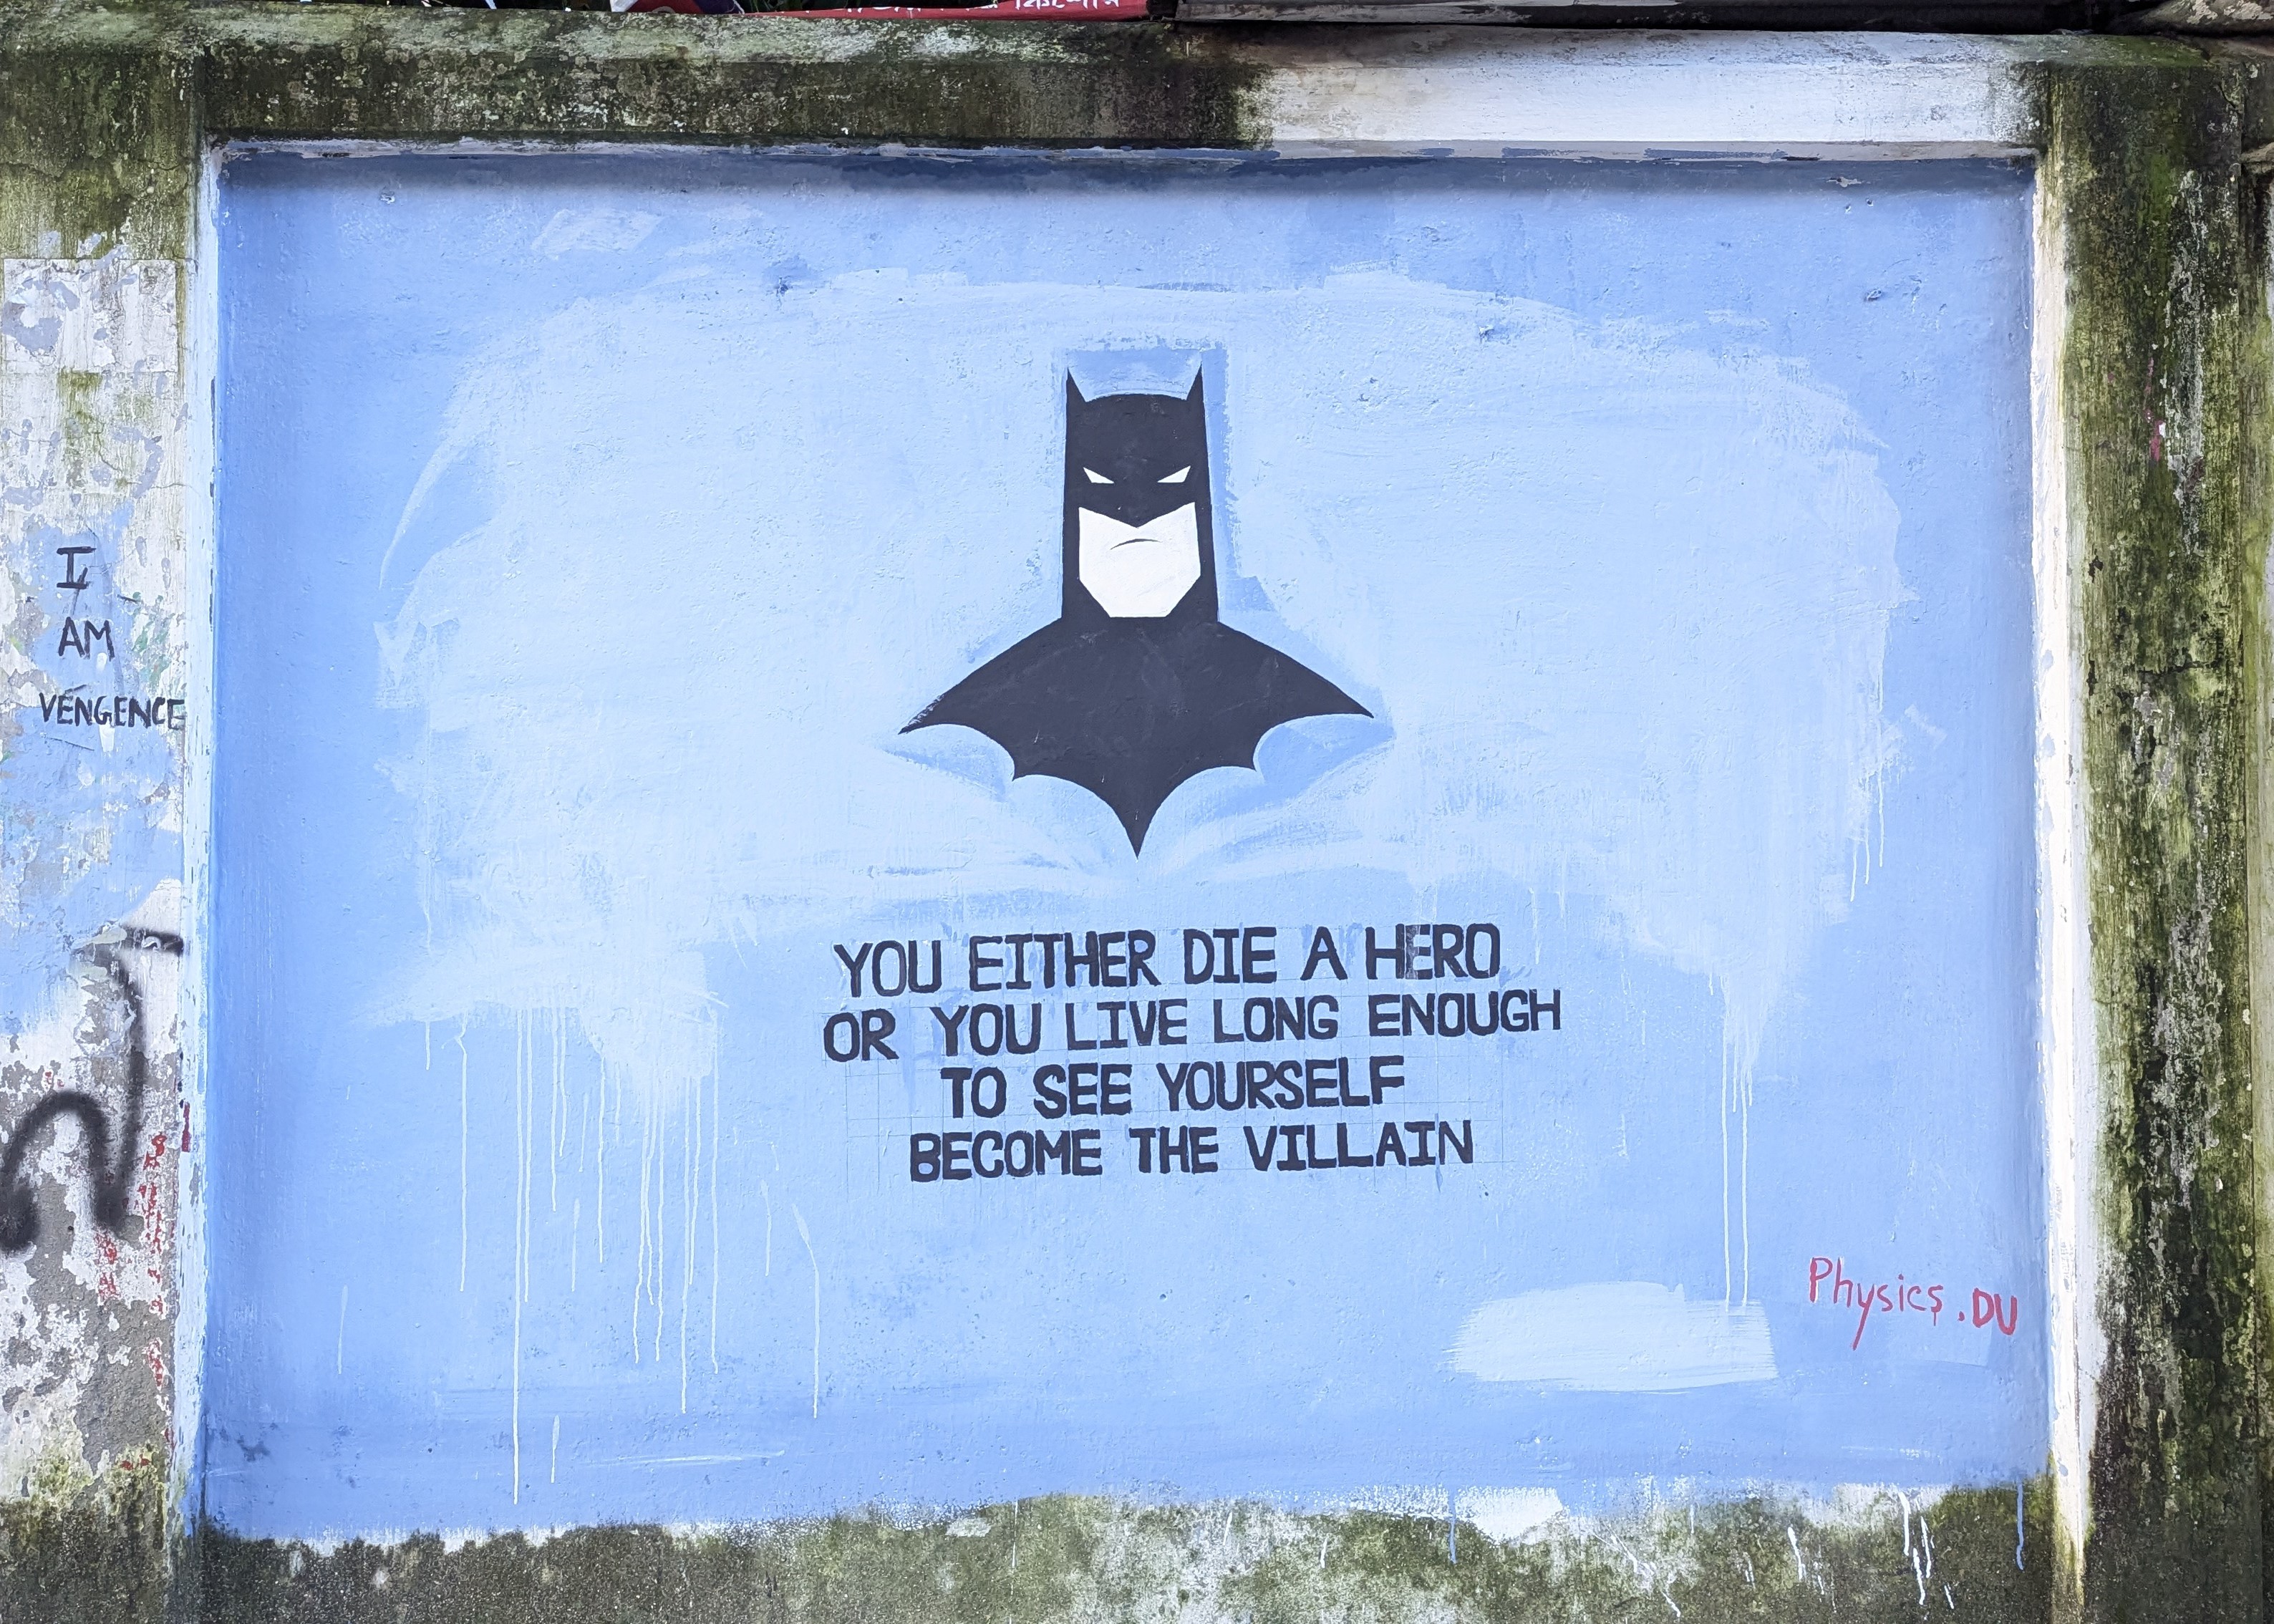 I
AM
VENGENCE
YOU EITHER DIE A HERO
OR YOU LIVE LONG ENOUGH
TO SEE YOURSELF
BECOME THE VILLAIN
Physics.DU